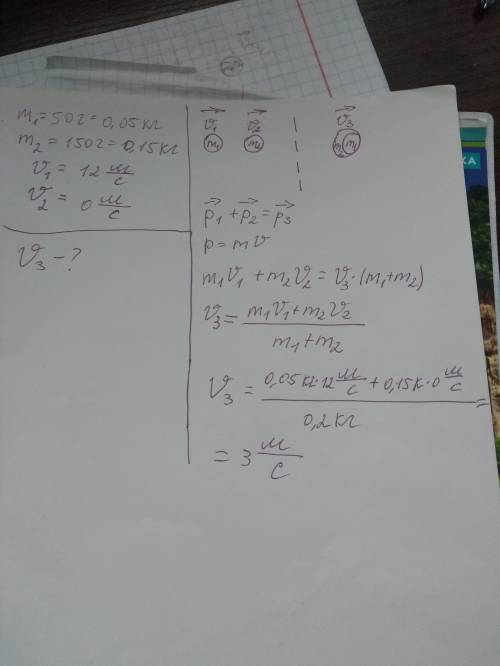 m₁=50г=0,05кг
m₂=150г=0,15кг
v₁= 12 м/с
v₂= 0 м/с
v₃-?
v₁ v₂ v₃
m₁ m₂ m₁ m₂
p₁+p₂=p₃
p=mv
m₁v₁+m₂v₂=v₃·(m₁+m₂)
v₃= (m₁v₁+m₂v₂)/(m₁+m₂)
v₃= (0,05кг·12 м/с+0,15к·0 м/с)/(0,2кг) =
= 3 м/с
КА